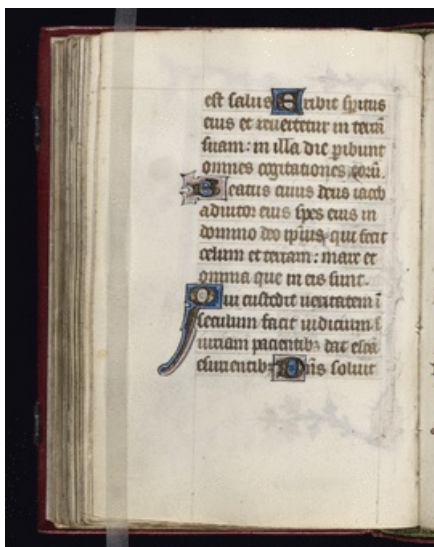 est salus Exibit sp̄itus
eius et reuertetur in terrā
suam: in illa die ꝑibunt
omnes cogitationes eorū.
Beatus cuius deus iacob
adiutor eius spes eius in
domino deo ip̄ius: qui fecit
celum et terram: mare et
omnia que in eis sunt.
Qui custodit ueritatem ī
seculum facit iudicium ī
iuriam pacientibꝫ dat escā
esurientibꝫ Dn̄s soluit